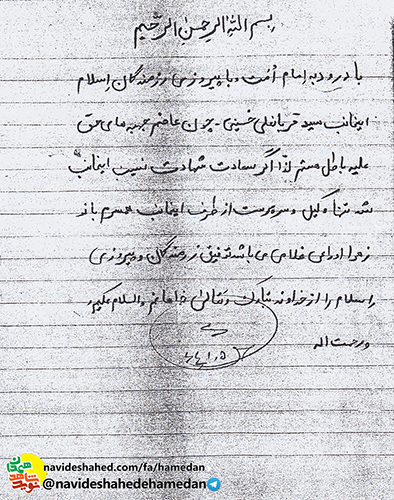 بسم الله الرحمن الرحیم
با درود به امام امت و با پیروزی رزمندگان اسلام
اینجانب سید قربانعلی حسینی - چون عازم جبهه های حق
علیه باطل هستم لذا اگر سعادت شهادت نصیب اینجانب
شد تنها وکیل و سرپرست از طرف اینجانب همسرم بانو
زهرا غلامی می باشد توفیق رزمندگان و پیروزی
اسلام را از خداوند تبارک و تعالی خواهانم والسلام علیکم و
ورحمت اله
navideshahed.com/fa/hamedan
@navideshahedehamedan